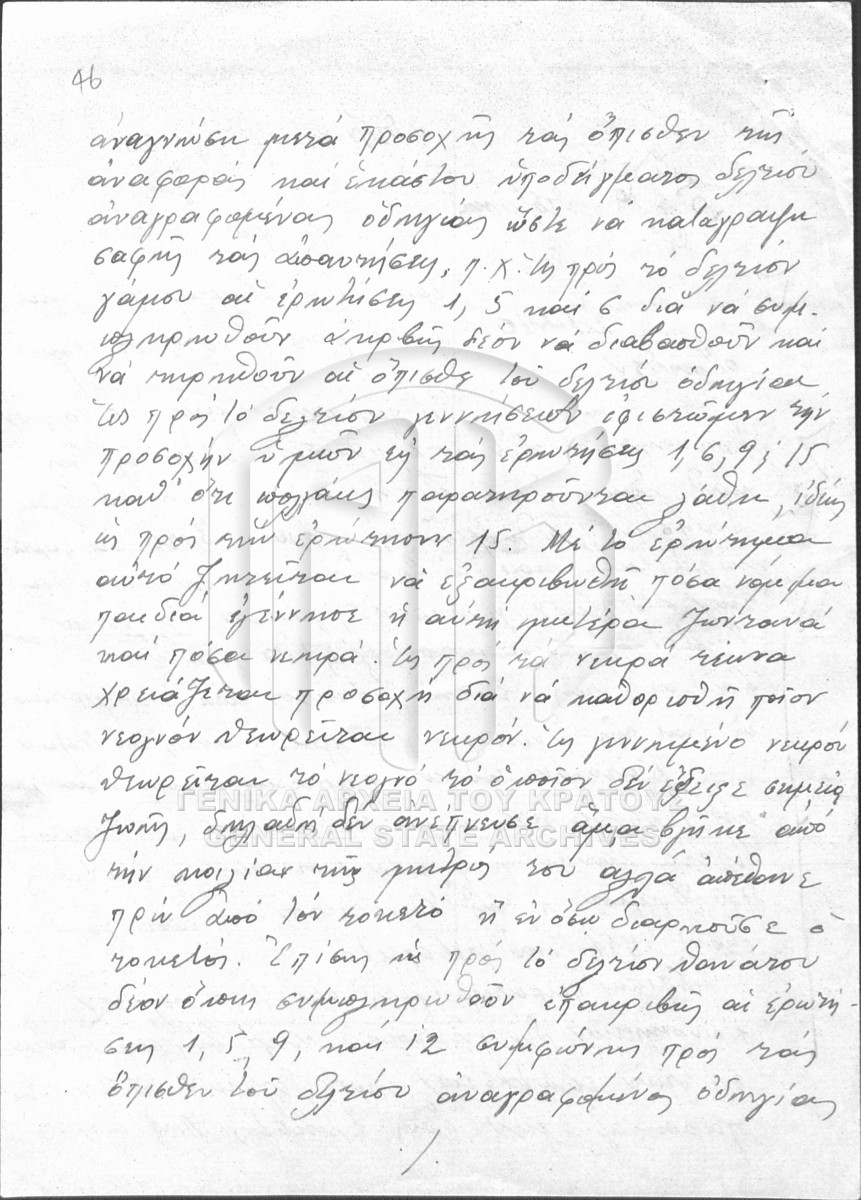 46
ἀναγνώση μετά προσοχῆς τάς ὄπισθεν τῆς
ἀναφορᾶς καί ἑκάστου ὑποδείγματος δελτίου
ἀναγραφομένας ὁδηγίας ὥστε νά καταγραφῆ
σαφῆς τάς ἀπαντήσεις, π.χ. Ὡς πρός τό δελτίον
γάμου αἱ ἐρωτήσεις 1, 5 καί 6 διά νά συμ-
πληρωθοῦν ἀκριβῶς δέον νά διαβασθοῦν καί
νά τηρηθοῦν αἱ ὄπισθε τοῦ δελτίου ὁδηγίαι
Ὡς πρός τό δελτίον γεννήσεων ἐφιστῶμεν τήν
προσοχήν ὑμῶν εἰς τάς ἐρωτήσεις 1, 6, 9 ; 15
καθ' ὅτι πολλάκις παρατηροῦνται λάθη, ἰδίως
ὡς πρός τήν ἐρώτησιν 15. Μέ τό ἐρώτημα
αὐτό ζητεῖται νά ἐξακριβωθῆ πόσα νόμιμα
παιδιά ἐγέννησε ἡ αὐτή μητέρα ζωντανά
καί πόσα νεκρά. Ὡς πρός τά νεκρά τέκνα
χρειάζεται προσοχή διά νά καθορισθῆ ποῖον
νεογνόν θεωρεῖται νεκρόν. Ὡς γεννημένο νεκρόν
θεωρεῖται τό νεογνό τό ὁποῖον δέν ἔδειξε σημεῖα
ζωῆς, δηλαδή δέν ἀνέπνευσε ἅμα βγῆκε ἀπό
τήν κοιλίαν τῆς μητρός του ἀλλά ἀπέθανε
πρίν ἀπό τόν τοκετό ἤ ἐν ὅσω διαρκοῦσε ὁ
τοκετός. Ἐπίσης ὡς πρός τό δελτίον θανάτου
δέον ὅπως συμπληρωθοῦν ἐπακριβῶς αἱ ἐρωτή-
σεις 1, 5, 9, καί 12 συμφώνως πρός τάς
ὄπισθεν τοῦ δελτίου ἀναγραφομένας ὁδηγίας
ΓΕΝΙΚΑ ΑΡΧΕΙΑ ΤΟΥ ΚΡΑΤΟΥΣ
GENERAL STATE ARCHIVES